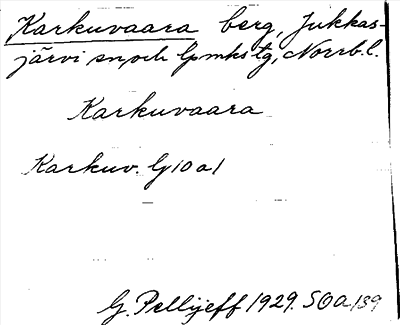 Karkuvaara berg, Jukkas-
järvi sn, och lpmks tg, Norrb. l.
Karkuvaara
Karkuv. G 10 a 1
G. Pellijeff 1929. SOA 139